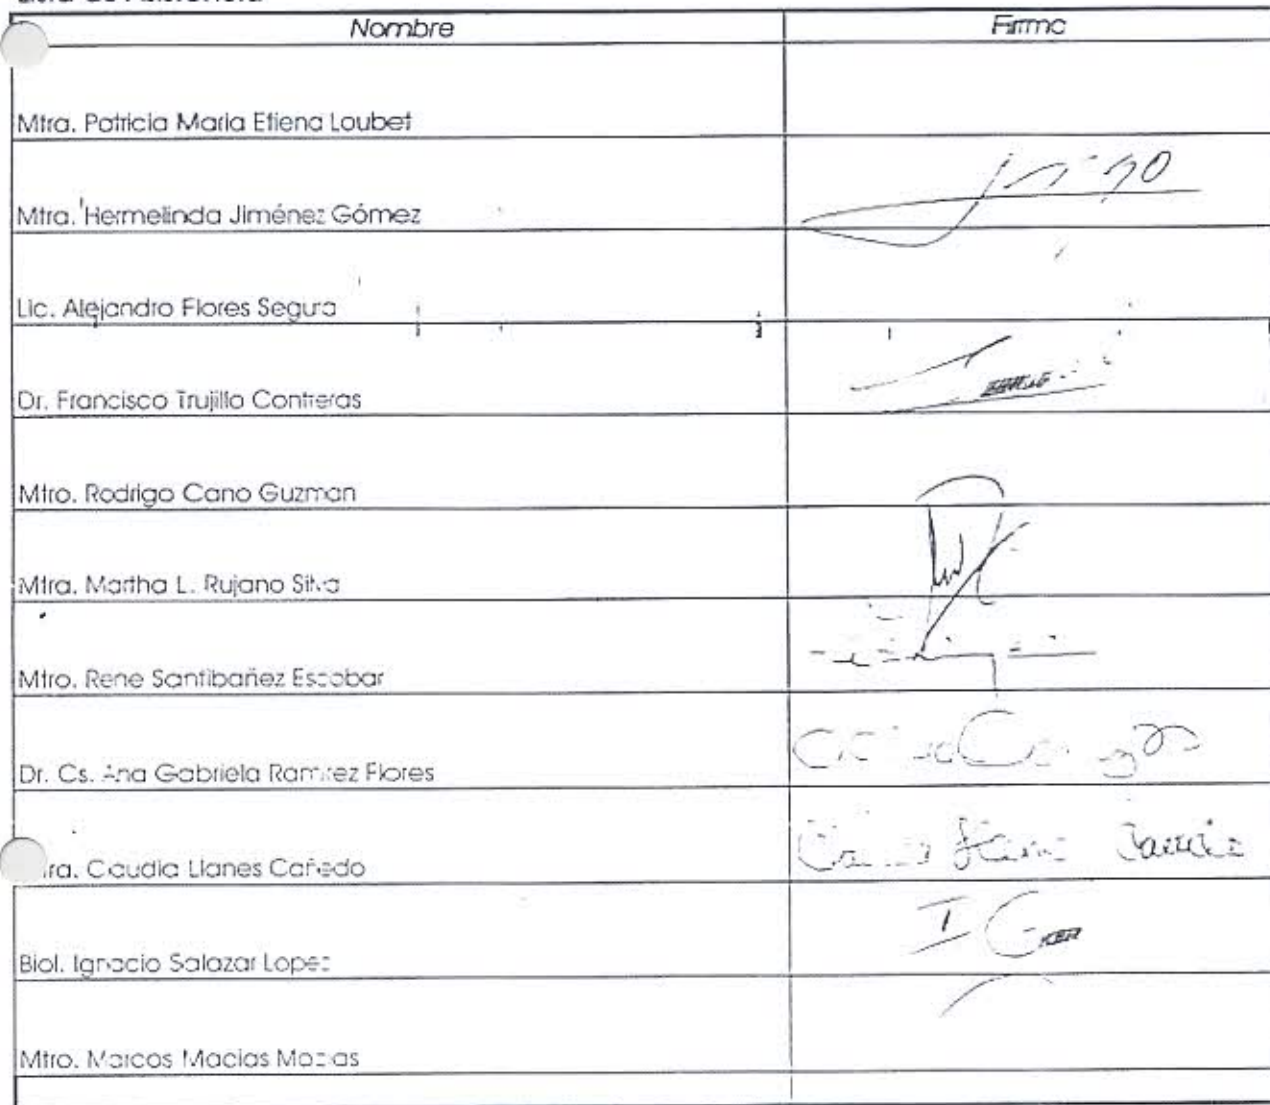 Nombre Firma
Mtra. Patricia Maria Etiena Loubet
Mtra. Hermelinda Jiménez Gómez
Lic. Alejandro Flores Segura
Dr. Francisco Trujillo Contreras
Mtro. Rodrigo Cano Guzman
Mtra. Martha L. Rujano Silva
Mtro. Rene Santibañez Escobar
Dr. Cs. Ana Gabriela Ramirez Flores
tra. Claudia Llanes Cañedo
Biol. Ignacio Salazar Lopez
Mtro. Marcos Macias Macias